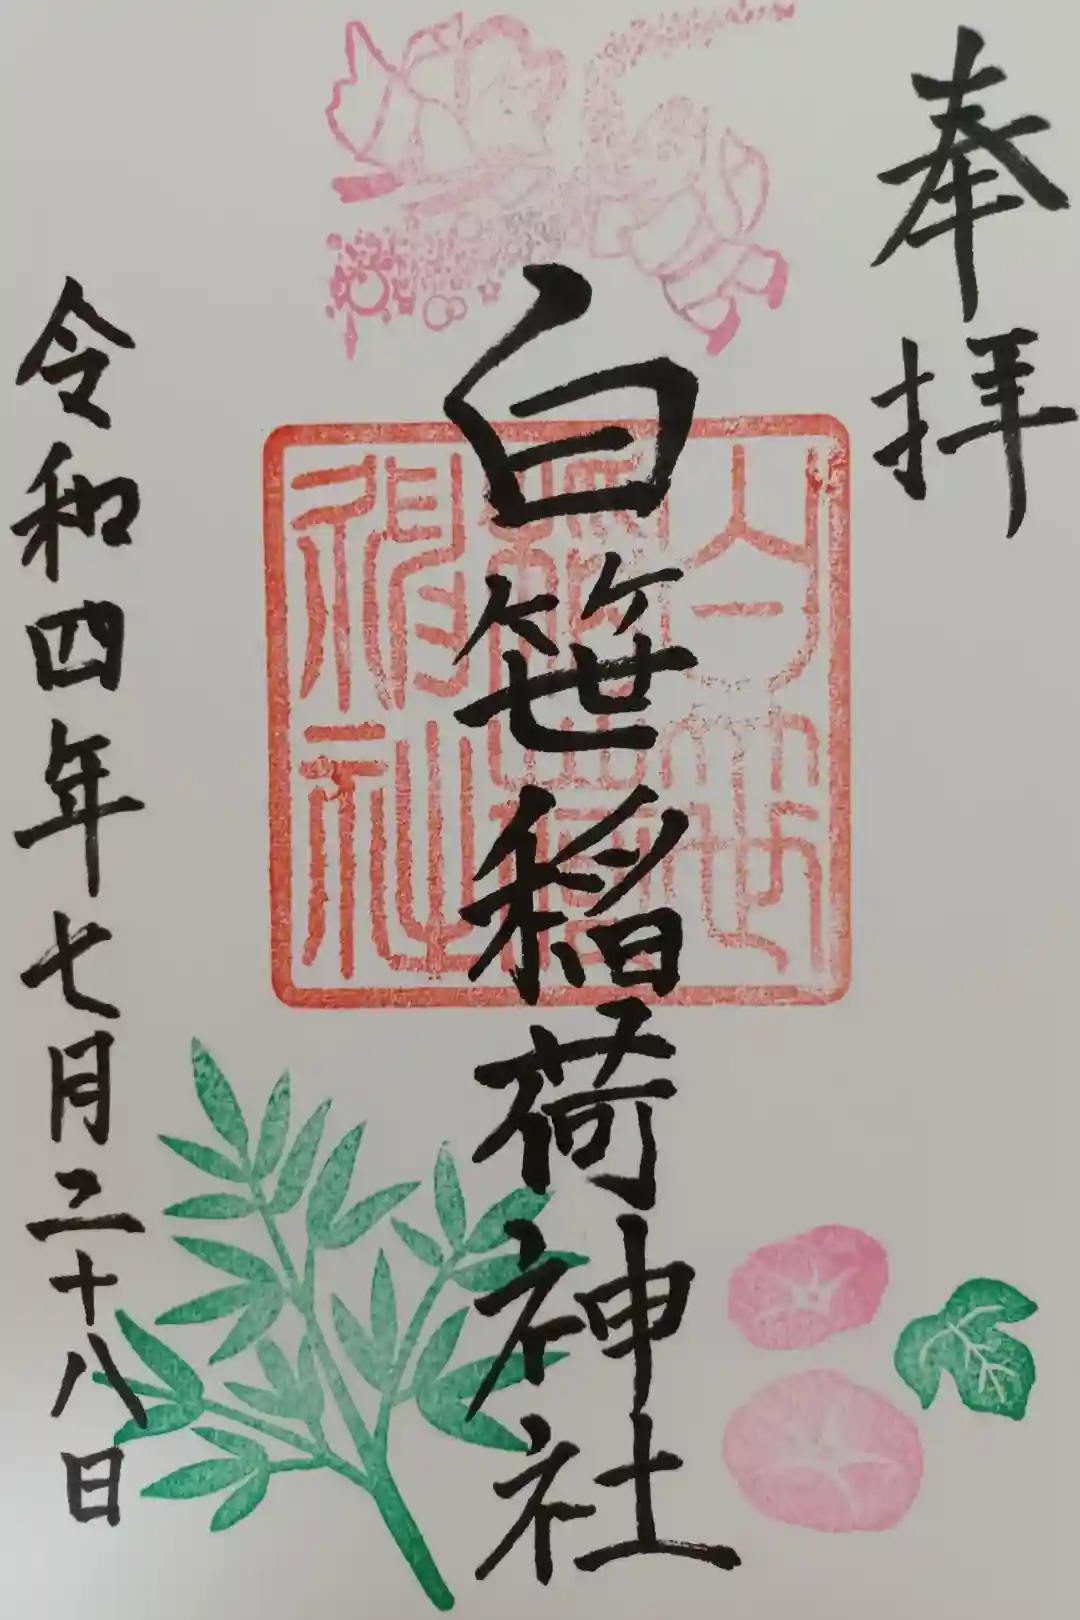 奉拝
白笹稲荷神社
令和四年七月二十八日